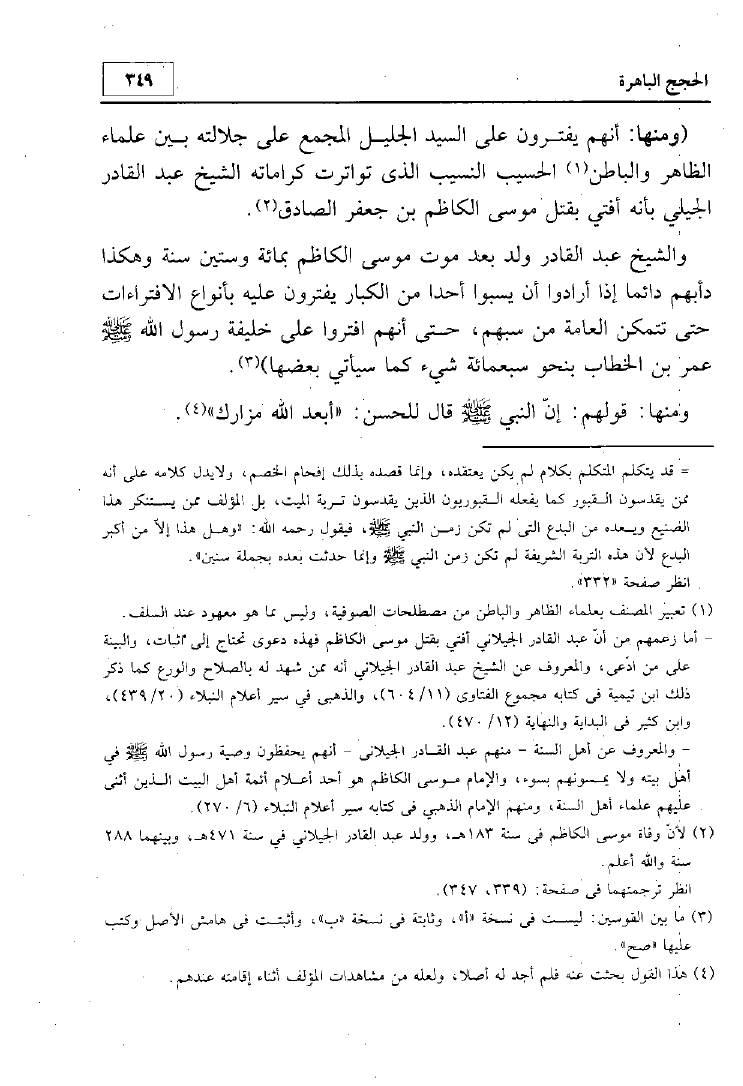 الحجج الباهرة
٣٤٩
(ومنها: أنهم يفترون على السيد الجليل المجمع على جلالته بين علماء
الظاهر والباطن(١) الحسيب النسيب الذى تواترت كراماته الشيخ عبد القادر
الجيلي بأنه أفتي بقتل موسى الكاظم بن جعفر الصادق(٢).
والشيخ عبد القادر ولد بعد موت موسى الكاظم بمائة وستين سنة وهكذا
دأبهم دائما إذا أرادوا أن يسبوا أحدا من الكبار يفترون عليه بأنواع الافتراءات
حتى تتمكن العامة من سبهم، حتى أنهم افتروا على خليفة رسول الله ﷺ
عمر بن الخطاب بنحو سبعمائة شيء كما سيأتي بعضها)(٣).
ومنها: قولهم: إنّ النبي ﷺ قال للحسن: «أبعد الله مزارك»(٤).
= قد يتكلم المتكلم بكلام لم يكن يعتقده، وإنما قصده بذلك إفحام الخصم، ولايدل كلامه على أنه
ممن يقدسون القبور كما يفعله القبوريون الذين يقدسون تربة الميت، بل المؤلف ممن يستنكر هذا
الصنيع ويعده من البدع التى لم تكن زمن النبي ﷺ، فيقول رحمه الله: «وهل هذا إلاّ من أكبر
البدع لأن هذه التربة الشريفة لم تكن زمن النبي ﷺ وإنما حدثت بعده بجملة سنين».
انظر صفحة «٣٣٢».
(١) تعبير المصنف بعلماء الظاهر والباطن من مصطلحات الصوفية، وليس مما هو معهود عند السلف.
- أما زعمهم من أنّ عبد القادر الجيلاني أفتي بقتل موسى الكاظم فهذه دعوى تحتاج إلى اثبات، والبينة
على من ادّعى، والمعروف عن الشيخ عبد القادر الجيلاني أنه ممن شهد له بالصلاح والورع كما ذكر
ذلك ابن تيمية فى كتابه مجموع الفتاوى (١١/ ٦٠٤)، والذهبى في سير أعلام النبلاء (٢٠/ ٤٣٩)،
وابن كثير فى البداية والنهاية (١٢/ ٤٧٠).
- والمعروف عن أهل السنة - منهم عبد القادر الجيلانى - أنهم يحفظون وصية رسول الله ﷺ في
أهل بيته ولا يمسونهم بسوء، والإمام موسى الكاظم هو أحد أعلام أئمة أهل البيت الذين أثنى
عليهم علماء أهل السنة، ومنهم الإمام الذهبي فى كتابه سير أعلام النبلاء (٦/ ٢٧٠).
(٢) لأنّ وفاة موسى الكاظم فى سنة ١٨٣هـ، وولد عبد القادر الجيلاني في سنة ٤٧١هـ، وبينهما ٢٨٨
سنة والله أعلم.
انظر ترجمتهما فى صفحة: (٣٣٩، ٣٤٧).
(٣) ما بين القوسين: ليست فى نسخة «أ»، وثابتة فى نسخة «ب»، وأثبتت فى هامش الأصل وكتب
عليها «صح».
(٤) هذا القول بحثت عنه فلم أجد له أصلا، ولعله من مشاهدات المؤلف أثناء إقامته عندهم.